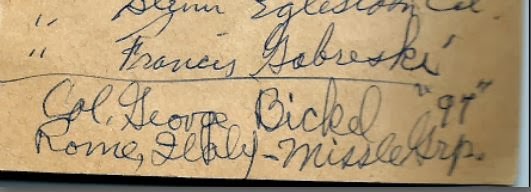 " Glenn Eglestom Col.
" Francis Gabreski
Col. George Bickel "97"
Rome, Italy - Missle Grp.